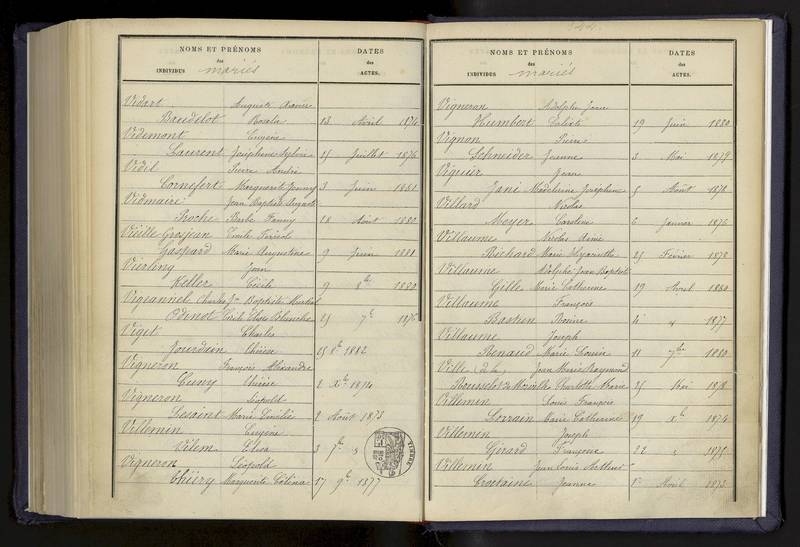 NOMS ET PRÉNOMS
des
INDIVIDUS mariés
DATES
des
ACTES.
Vidart Auguste Xavier
Baudelot Rosalie 13 Avril 1874
Videmont Eugène
Laurent Joséphine Sylvie 25 Juillet 1876
Vidil Pierre André
Cornefert Marguerite Fanny 3 Juin 1881
Vidmaire Jean Baptiste Auguste
Roche Barbe Fanny 18 Août 1880
Vieille Grosjean Emile
Gaspard Marie Augustine 9 Juin 1881
Vierling Jean
Keller Cécile 9 8bre 1880
Charles Jn Baptiste Martial
Odinot Élise Blanche 25 7bre 1876
Viget Charles
Jourdain Thérèse 25 8bre 1882
Vigneron François Alexandre
Cuny Thérèse 2 Xbre 1874
Vigneron Léopold
Lesaint Marie Emélie 2 Août 1873
Villemin Eugène
Vilem Elisa 3 7bre
Vigneron Léopold
Thiéry Marguerite Célina 17 9bre 1877
TIMBRE
NOMS ET PRÉNOMS
des
INDIVIDUS mariés
DATES
des
ACTES.
Vigneron Adolphe Jean
Humbert 19 Juin 1880
Vignon Pierre
Schneider Jeanne 3 Mai 1879
Viguier Jean
Jané Madeleine Joséphine 5 Août 1878
Villard Nicolas
Meyer Caroline 6 Janvier 1876
Villaume Nicolas Aimé
Richard Marie Hyacinthe 25 Février 1878
Villaume Adolphe Jean Baptiste
Gille Marie Catherine 19 Avril 1880
Villaume François
Bastien Rosine 4 " 1877
Villaume Joseph
Renaud Marie Louise 11 7bre 1880
Ville (de la) Jean Marie Raymond
Rousselot de Charlotte Marie 25 Mai 1878
Villemin Louis François
Lorrain Marie Catherine 19 Xbre 1874
Villemin Joseph
Gérard Françoise 22 " 1875
Villemin Jean Louis Arthur
Croctaine Jeanne 1er Avril 1873